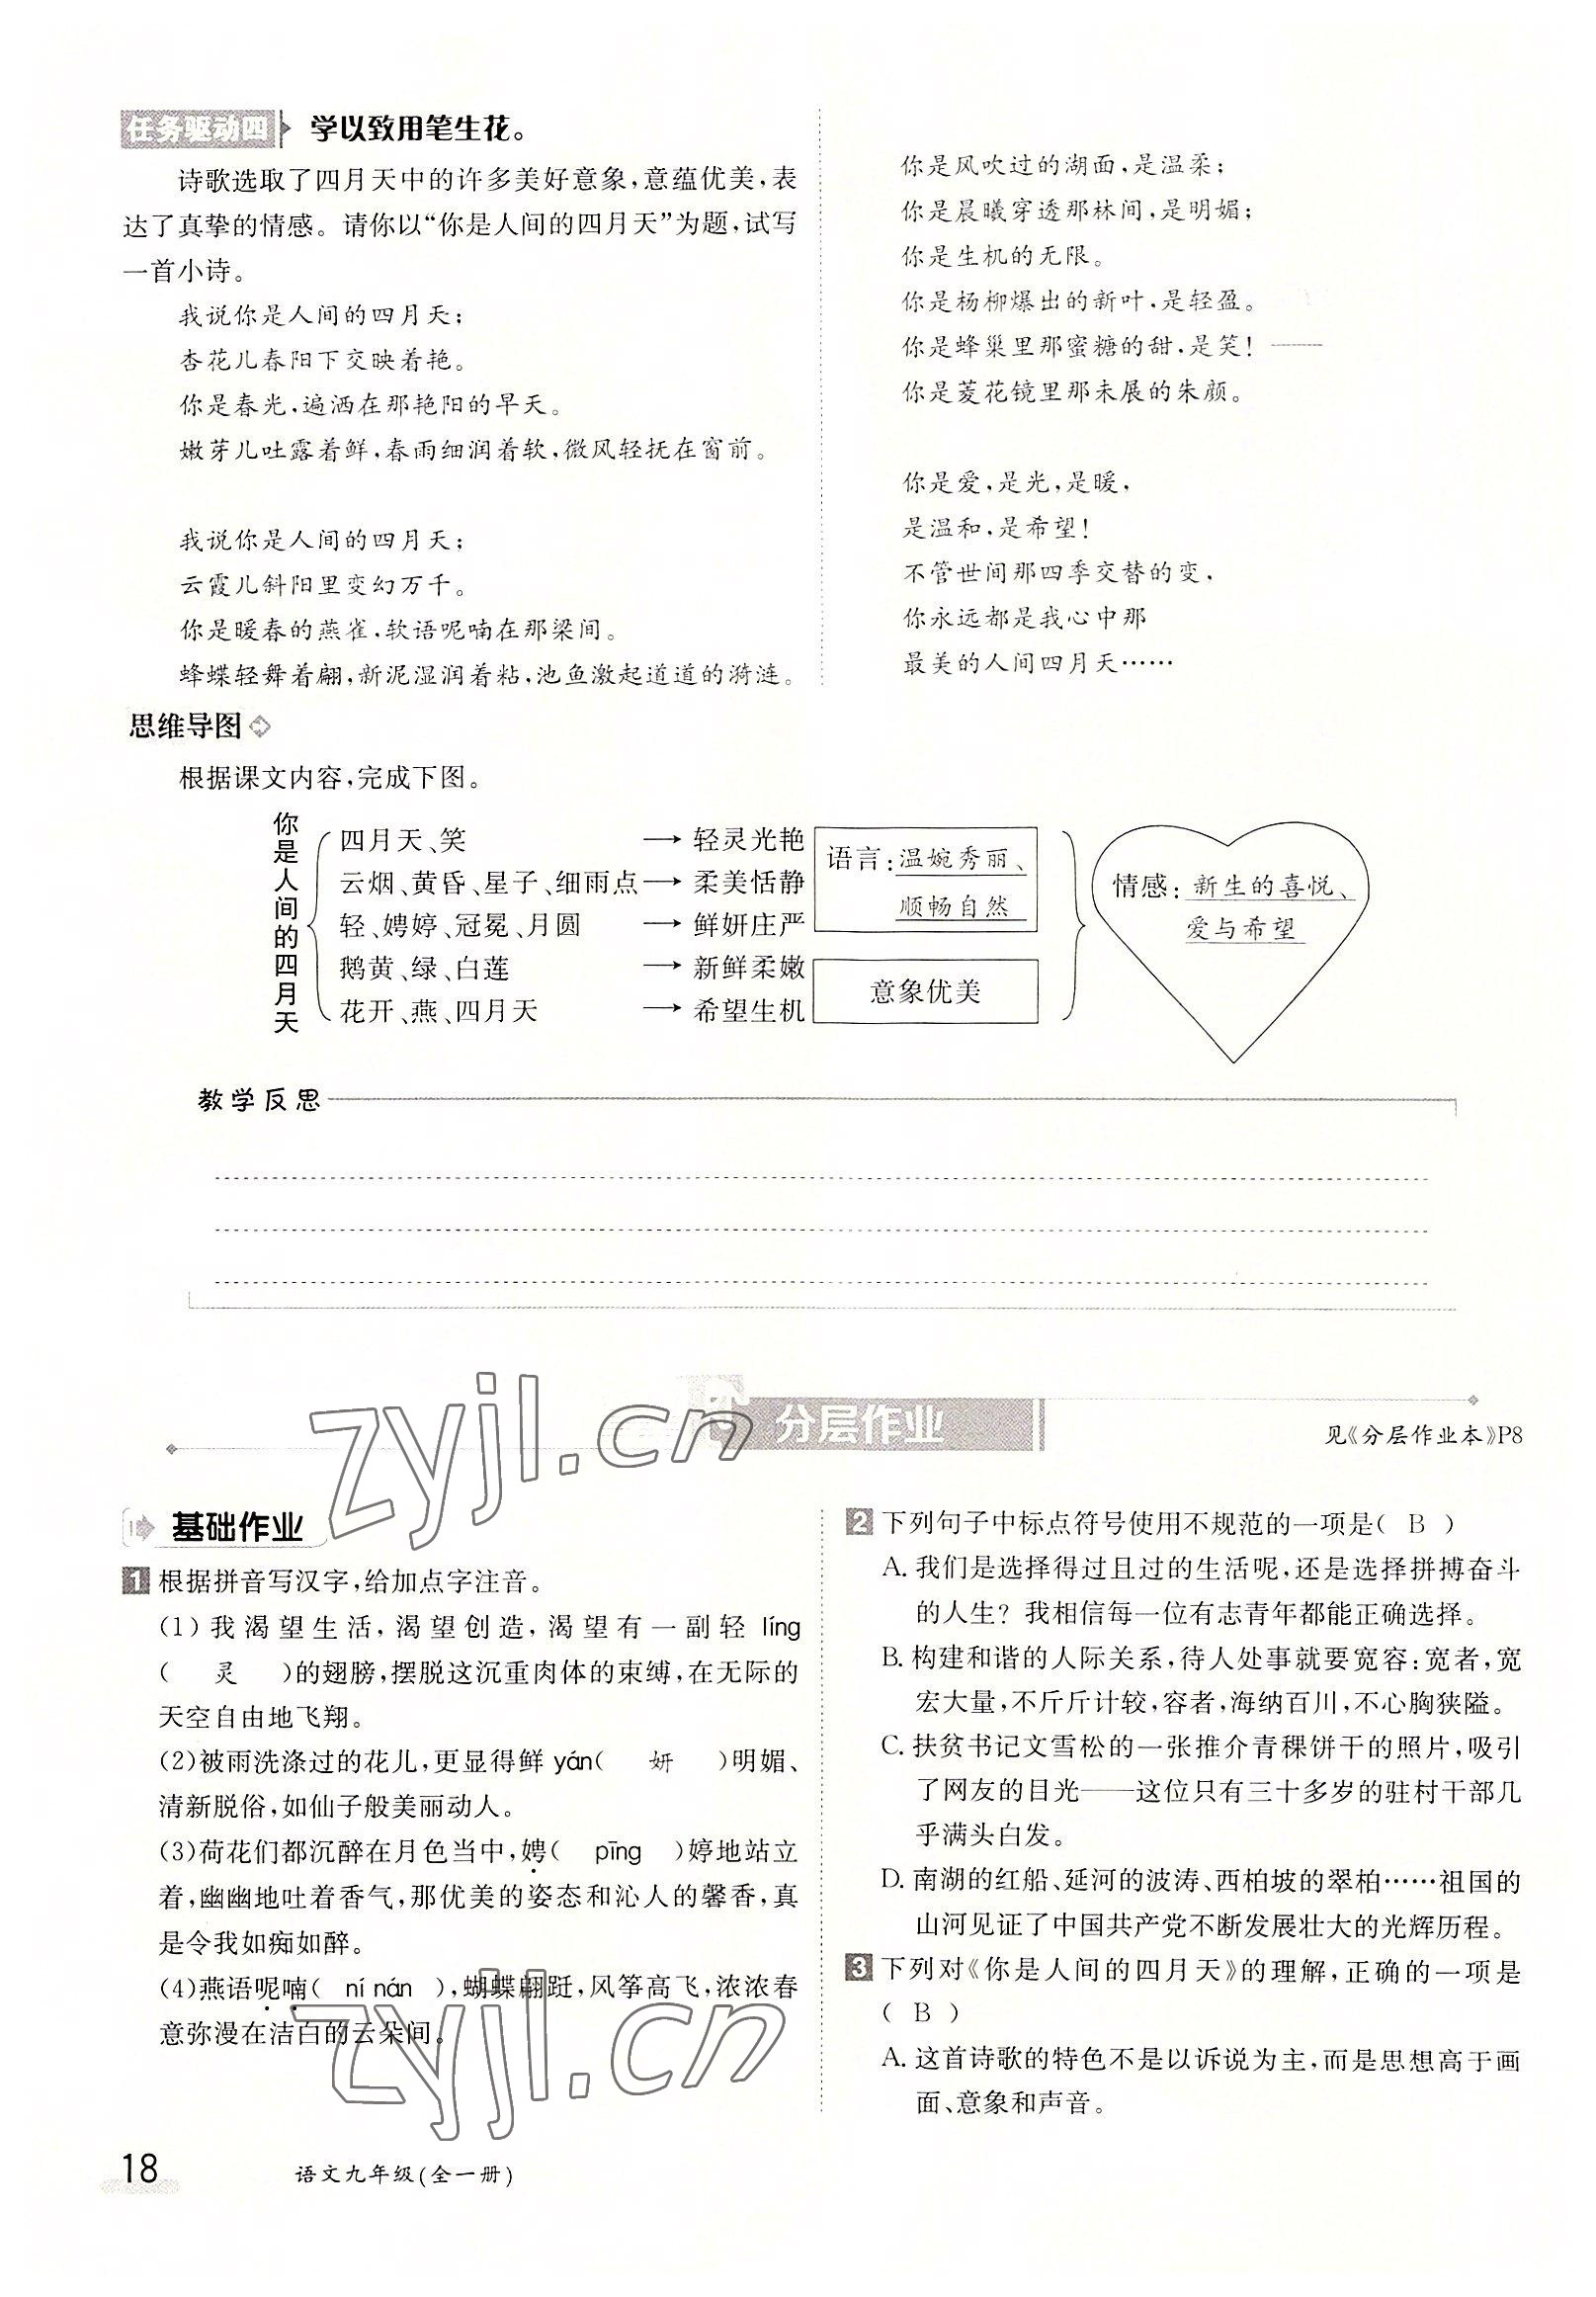 任务驱动四 学以致用笔生花。
诗歌选取了四月天中的许多美好意象,意蕴优美,表
达了真挚的情感。请你以“你是人间的四月天”为题,试写
一首小诗。
我说你是人间的四月天;
杏花儿春阳下交映着艳。
你是春光,遍洒在那艳阳的早天。
嫩芽儿吐露着鲜,春雨细润着软,微风轻抚在窗前。
我说你是人间的四月天;
云霞儿斜阳里变幻万千。
你是暖春的燕雀,软语呢喃在那梁间。
蜂蝶轻舞着翩,新泥湿润着粘,池鱼激起道道的漪涟。
你是风吹过的湖面,是温柔;
你是晨曦穿透那林间,是明媚;
你是生机的无限。
你是杨柳爆出的新叶,是轻盈。
你是蜂巢里那蜜糖的甜,是笑!——
你是菱花镜里那未展的朱颜。
你是爱,是光,是暖,
是温和,是希望!
不管世间那四季交替的变,
你永远都是我心中那
最美的人间四月天……
思维导图
根据课文内容,完成下图。
你是人间的四月天
四月天、笑→轻灵光艳
云烟、黄昏、星子、细雨点→柔美恬静
轻、娉婷、冠冕、月圆→鲜妍庄严
鹅黄、绿、白莲→新鲜柔嫩
花开、燕、四月天→希望生机
语言:温婉秀丽、
顺畅自然
意象优美
情感:新生的喜悦、
爱与希望
教学反思
分层作业
见《分层作业本》P8
基础作业
1 根据拼音写汉字,给加点字注音。
(1)我渴望生活,渴望创造,渴望有一副轻 líng
( 灵 )的翅膀,摆脱这沉重肉体的束缚,在无际的
天空自由地飞翔。
(2)被雨洗涤过的花儿,更显得鲜 yán( 妍 )明媚、
清新脱俗,如仙子般美丽动人。
(3)荷花们都沉醉在月色当中,娉( pīng )婷地站立
着,幽幽地吐着香气,那优美的姿态和沁人的馨香,真
是令我如痴如醉。
(4)燕语呢喃( ní nán ),蝴蝶翩跹,风筝高飞,浓浓春
意弥漫在洁白的云朵间。
2 下列句子中标点符号使用不规范的一项是( B )
A. 我们是选择得过且过的生活呢,还是选择拼搏奋斗
的人生?我相信每一位有志青年都能正确选择。
B. 构建和谐的人际关系,待人处事就要宽容:宽者,宽
宏大量,不斤斤计较,容者,海纳百川,不心胸狭隘。
C. 扶贫书记文雪松的一张推介青稞饼干的照片,吸引
了网友的目光——这位只有三十多岁的驻村干部几
乎满头白发。
D. 南湖的红船、延河的波涛、西柏坡的翠柏……祖国的
山河见证了中国共产党不断发展壮大的光辉历程。
3 下列对《你是人间的四月天》的理解,正确的一项是
( B )
A. 这首诗歌的特色不是以诉说为主,而是思想高于画
面、意象和声音。
18 语文九年级(全一册)
zyjl.cn
zyjl.cn